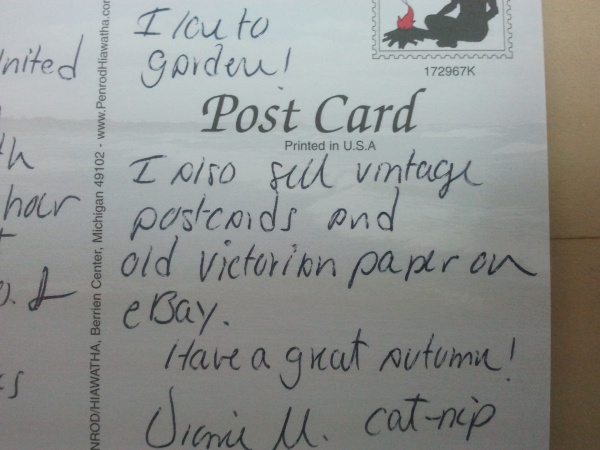 United
hour
NROD/HIAWATHA, Berrien Center, Michigan 49102 - www.PenrodHiawatha.com
172967K
I to
garden!
Post Card
Printed in U.S.A
I also sell vintage
postcards and
old Victorian paper on
eBay.
Have a great autumn!
M. cat-nip